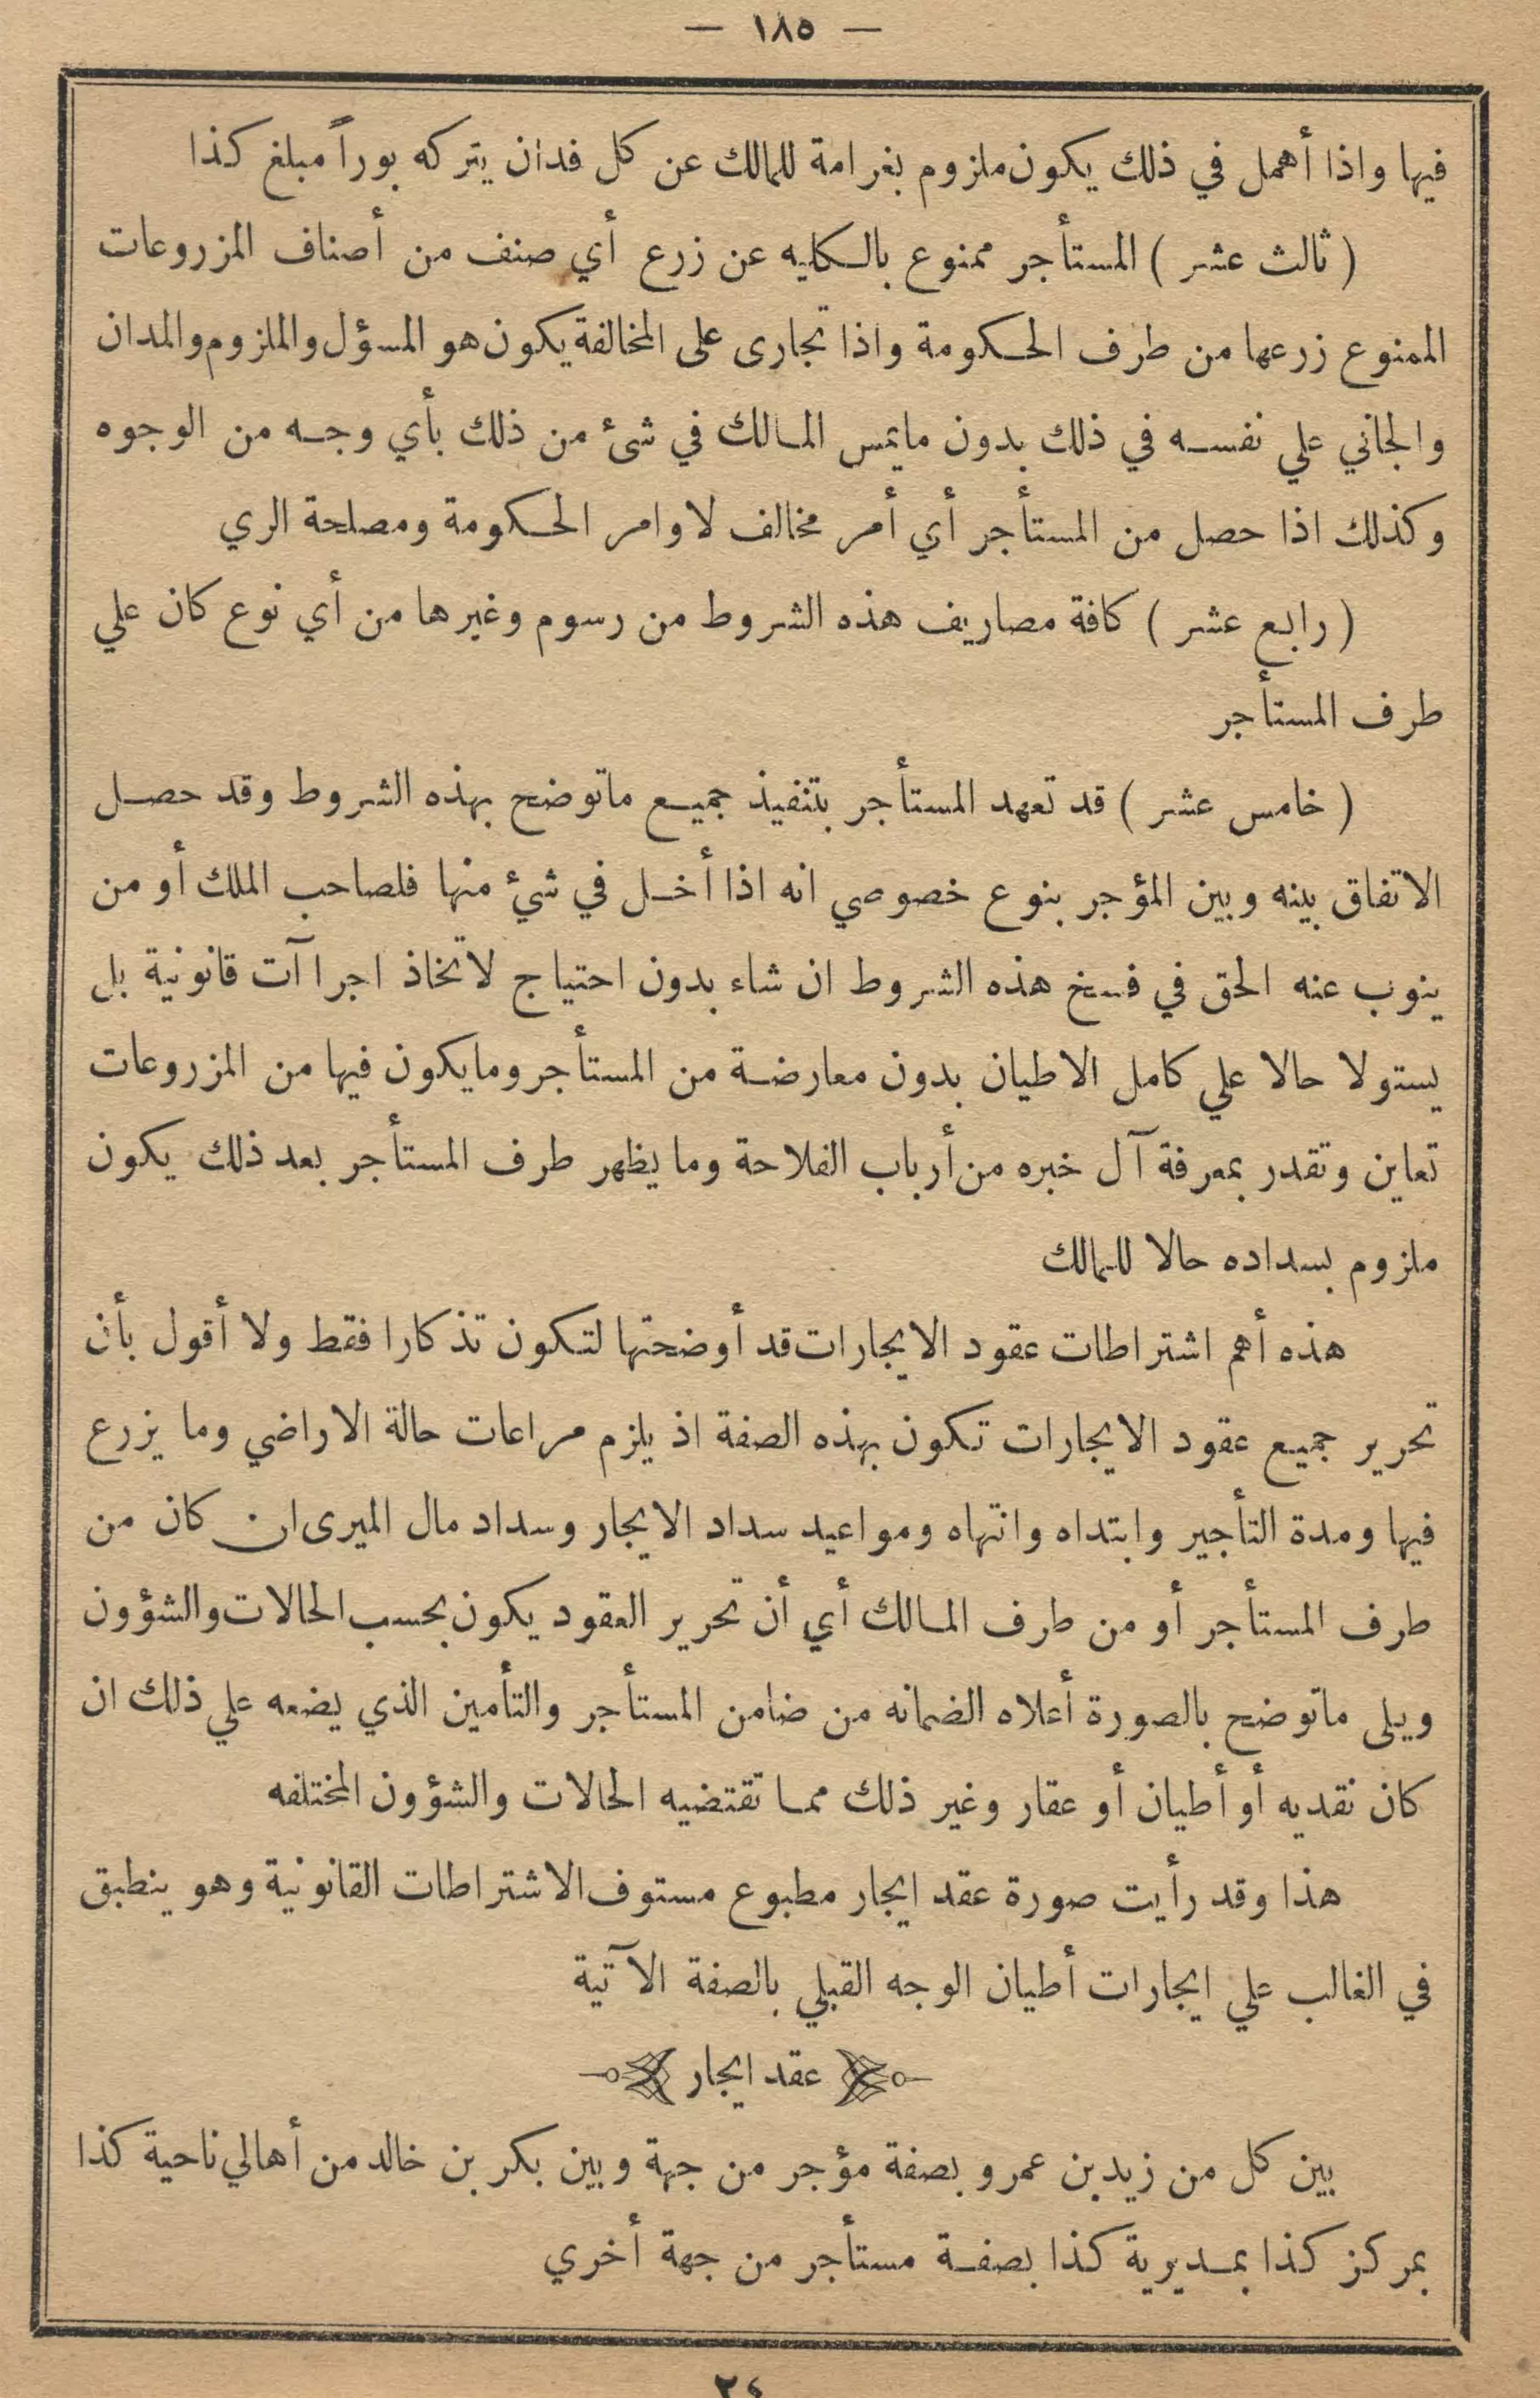 — ١٨٥ —
فيها واذا أهمل في ذلك يكون ملزوم بغرامة للمالك عن كل فدان يتركه بوراً مبلغ كذا
( ثالث عشر ) المستأجر ممنوع بالكليه عن زرع أي صنف من أصناف المزروعات
الممنوع زرعها من طرف الحكومة واذا تجارى على المخالفة يكون هو المسؤل والملزوم والمدان
والجاني علي نفسه في ذلك بدون مايمس المالك في شئ من ذلك بأي وجه من الوجوه
وكذلك اذا حصل من المستأجر أي أمر مخالف لاوامر الحكومة ومصلحة الري
( رابع عشر ) كافة مصاريف هذه الشروط من رسوم وغيرها من أي نوع كان علي
طرف المستأجر
( خامس عشر ) قد تعهد المستأجر بتنفيذ جميع ماتوضح بهذه الشروط وقد حصل
الاتفاق بينه وبين المؤجر بنوع خصوصي انه اذا أخل في شئ منها فلصاحب الملك أو من
ينوب عنه الحق في فسخ هذه الشروط ان شاء بدون احتياج لاتخاذ اجراآت قانونية بل
يستولا حالا علي كامل الاطيان بدون معارضة من المستأجر ومايكون فيها من المزروعات
تعاين وتقدر بمعرفة آل خبره من أرباب الفلاحة وما يظهر طرف المستأجر بعد ذلك يكون
ملزوم بسداده حالا للمالك
هذه أهم اشتراطات عقود الايجارات قد أوضحتها لتكون تذكارا فقط ولا أقول بأن
تحرير جميع عقود الايجارات تكون بهذه الصفة اذ يلزم مراعات حالة الاراضي وما يزرع
فيها ومدة التأجير وابتداه وانتهاه ومواعيد سداد الايجار وسداد مال الميرى ان كان من
طرف المستأجر أو من طرف المالك أي أن تحرير العقود يكون بحسب الحالات والشؤون
ويلى ماتوضح بالصورة أعلاه الضمانه من ضامن المستأجر والتأمين الذي يضعه علي ذلك ان
كان نقديه أو أطيان أو عقار وغير ذلك مما تقتضيه الحالات والشؤون المختلفه
هذا وقد رأيت صورة عقد ايجار مطبوع مستوف الاشتراطات القانونية وهو ينطبق
في الغالب علي ايجارات أطيان الوجه القبلي بالصفة الآتية
عقد ايجار
بين كل من زيد بن عمرو بصفة مؤجر من جهة وبين بكر بن خالد من أهالي ناحية كذا
بمركز كذا بمديرية كذا بصفة مستأجر من جهة أخري
٢٤